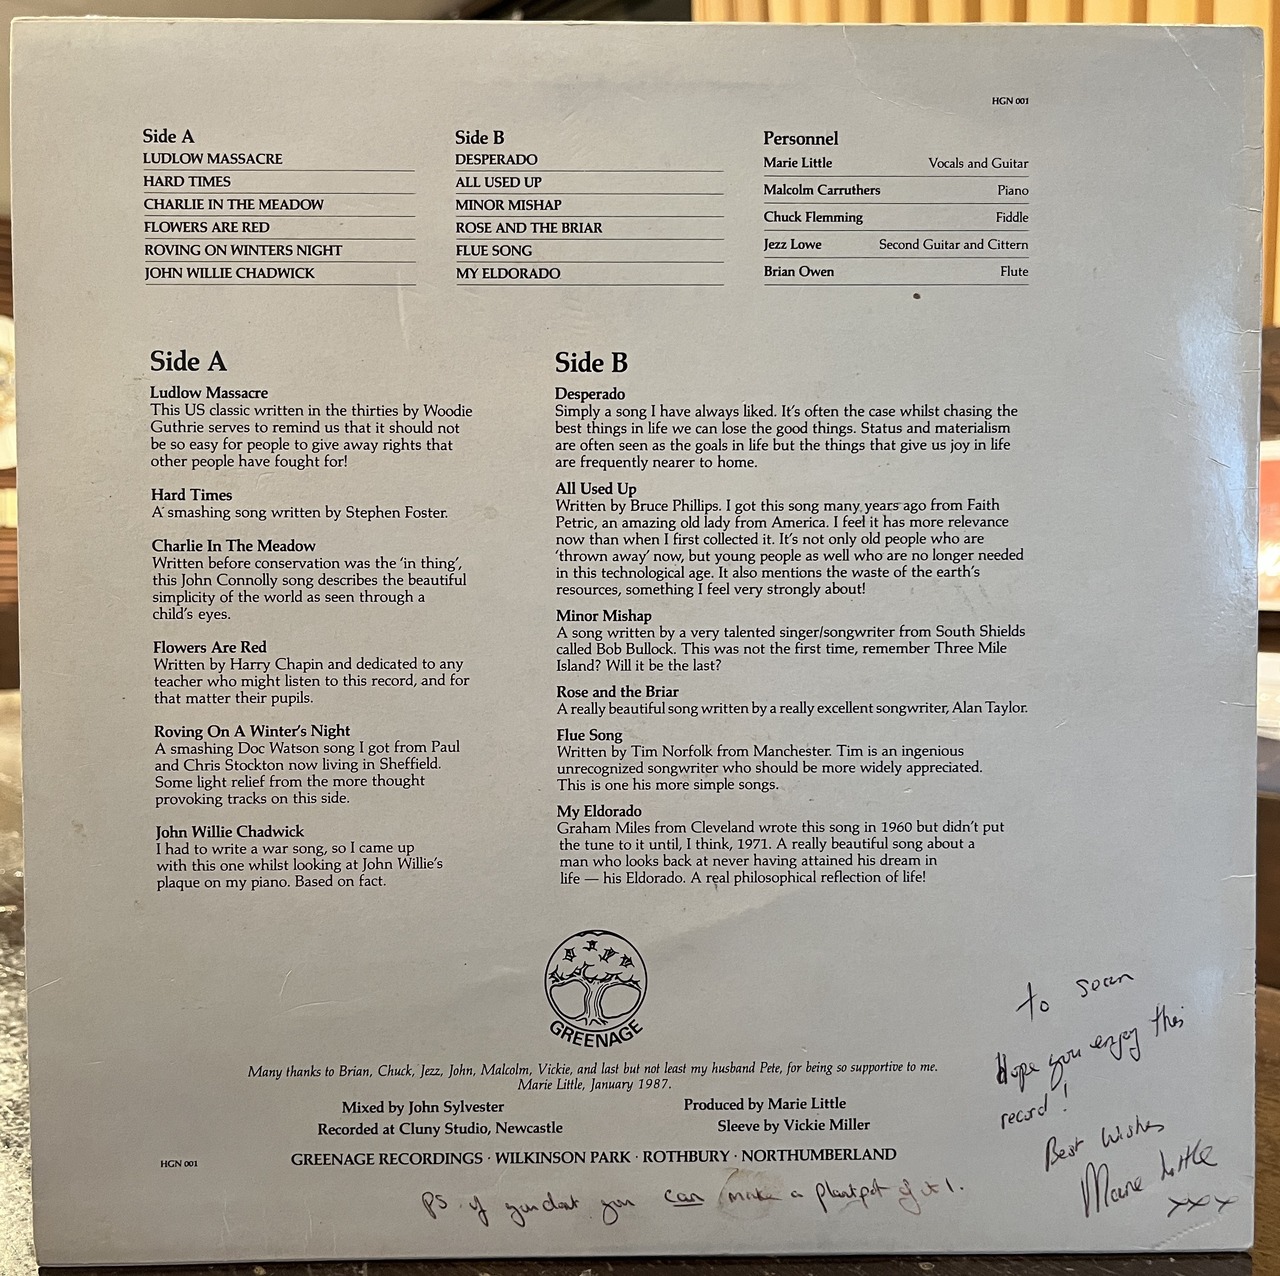 HGN 001
Side A
LUDLOW MASSACRE
HARD TIMES
CHARLIE IN THE MEADOW
FLOWERS ARE RED
ROVING ON WINTERS NIGHT
JOHN WILLIE CHADWICK
Side B
DESPERADO
ALL USED UP
MINOR MISHAP
ROSE AND THE BRIAR
FLUE SONG
MY ELDORADO
Personnel
Marie Little Vocals and Guitar
Malcolm Carruthers Piano
Chuck Flemming Fiddle
Jezz Lowe Second Guitar and Cittern
Brian Owen Flute
Side A
Ludlow Massacre
This US classic written in the thirties by Woodie
Guthrie serves to remind us that it should not
be so easy for people to give away rights that
other people have fought for!
Hard Times
A smashing song written by Stephen Foster.
Charlie In The Meadow
Written before conservation was the 'in thing',
this John Connolly song describes the beautiful
simplicity of the world as seen through a
child's eyes.
Flowers Are Red
Written by Harry Chapin and dedicated to any
teacher who might listen to this record, and for
that matter their pupils.
Roving On A Winter's Night
A smashing Doc Watson song I got from Paul
and Chris Stockton now living in Sheffield.
Some light relief from the more thought
provoking tracks on this side.
John Willie Chadwick
I had to write a war song, so I came up
with this one whilst looking at John Willie's
plaque on my piano. Based on fact.
Side B
Desperado
Simply a song I have always liked. It's often the case whilst chasing the
best things in life we can lose the good things. Status and materialism
are often seen as the goals in life but the things that give us joy in life
are frequently nearer to home.
All Used Up
Written by Bruce Phillips. I got this song many years ago from Faith
Petric, an amazing old lady from America. I feel it has more relevance
now than when I first collected it. It's not only old people who are
'thrown away' now, but young people as well who are no longer needed
in this technological age. It also mentions the waste of the earth's
resources, something I feel very strongly about!
Minor Mishap
A song written by a very talented singer/songwriter from South Shields
called Bob Bullock. This was not the first time, remember Three Mile
Island? Will it be the last?
Rose and the Briar
A really beautiful song written by a really excellent songwriter, Alan Taylor.
Flue Song
Written by Tim Norfolk from Manchester. Tim is an ingenious
unrecognized songwriter who should be more widely appreciated.
This is one his more simple songs.
My Eldorado
Graham Miles from Cleveland wrote this song in 1960 but didn't put
the tune to it until, I think, 1971. A really beautiful song about a
man who looks back at never having attained his dream in
life — his Eldorado. A real philosophical reflection of life!
GREENAGE
Many thanks to Brian, Chuck, Jezz, John, Malcolm, Vickie, and last but not least my husband Pete, for being so supportive to me.
Marie Little, January 1987.
Mixed by John Sylvester
Recorded at Cluny Studio, Newcastle
Produced by Marie Little
Sleeve by Vickie Miller
HGN 001
GREENAGE RECORDINGS · WILKINSON PARK · ROTHBURY · NORTHUMBERLAND
To Sean
Hope you enjoy this
record!
Best Wishes
Marie Little
xxx
PS if you dont you can make a plantpot of it!.